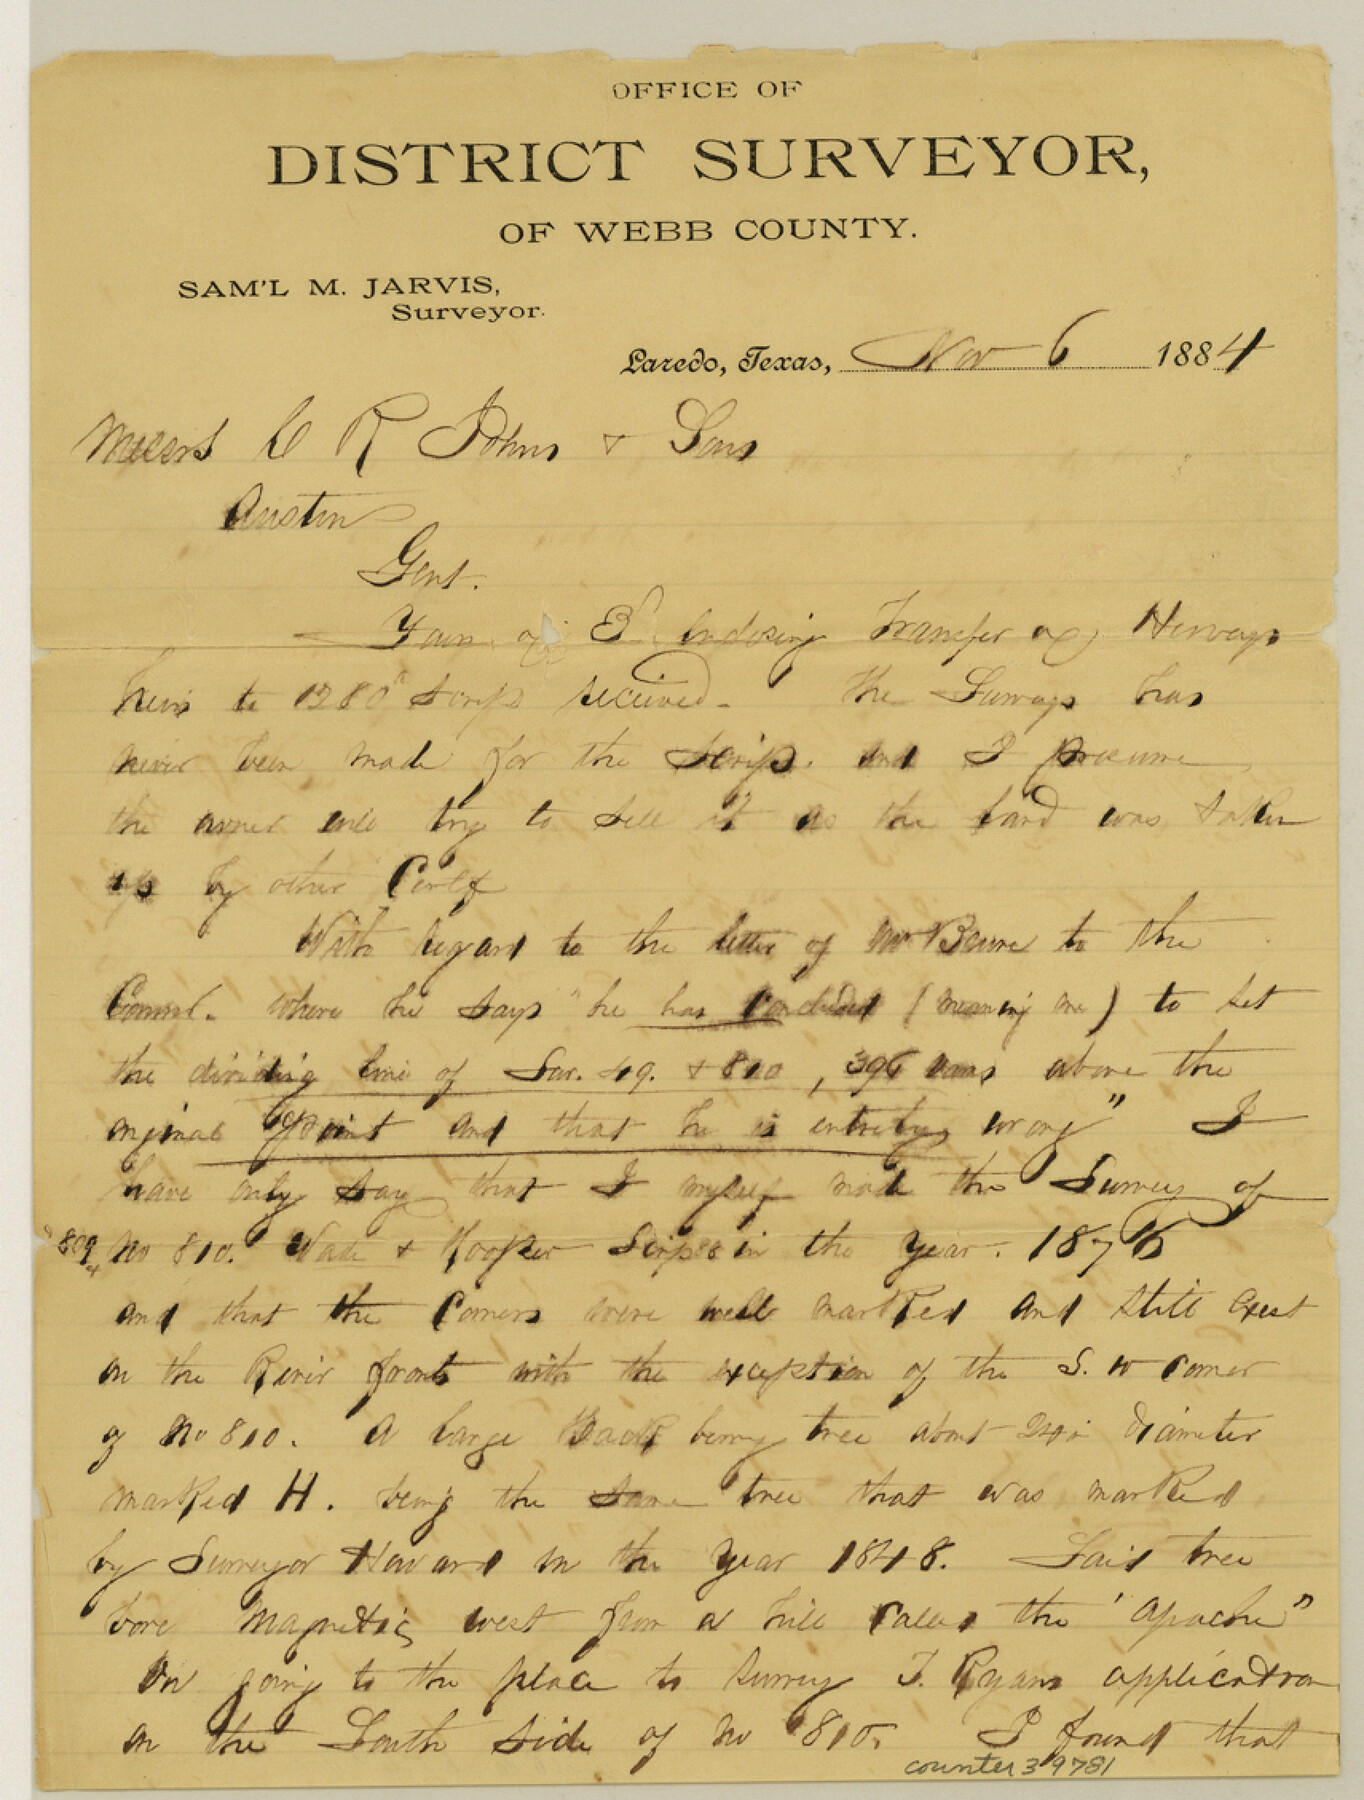 OFFICE OF
DISTRICT SURVEYOR,
OF WEBB COUNTY.
SAM'L M. JARVIS,
Surveyor.
Laredo, Texas, Nov 6 1884
Messrs C R Johns & Sons
Austin
Gent.
Yours of 3d Enclosing Transfer of
heirs to 1280 a Scrip received. The Surveys has
never been made for the Scrip. and I presume
the owner will try to sell it as the land was taken
up by other Certf
With regard to the letter of Mr to the
Comml. where he says "he has concluded (meaning me) to set
the dividing line of Sur. 49. & 810, 396 varas above the
original point and that he is entirely wrong" I
have only say that I myself made the Survey of
809 No 810. Wade & Hooper Scrip in the year. 1876
and that the Corners were well marked and still exist
on the River front with the exception of the S. W corner
of No 810. A large Hack berry tree about 24 in diameter
marked H. being the same tree that was marked
by Surveyor Howard in the year 1848. Said tree
bore magnetic west from a hill called the 'apache"
On going to the place to survey T. Ryans application
on the South side of No 810. I found that
counter 39781